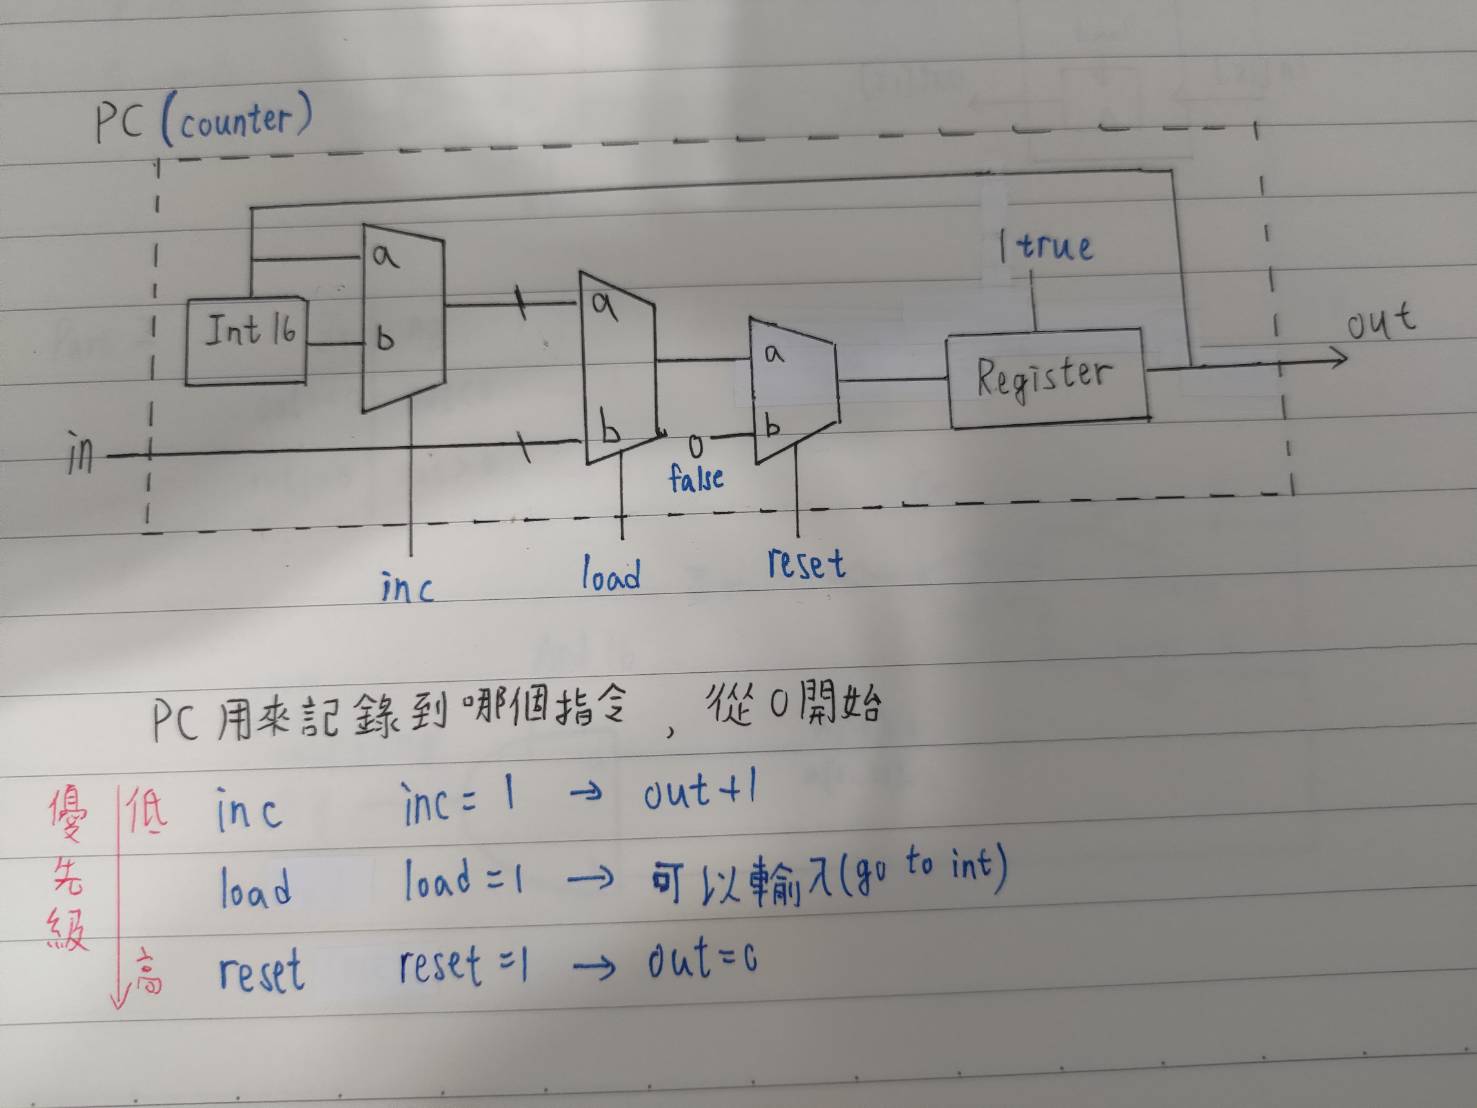 PC (counter)
a
b
Int 16
a
b
a
b
1 true
Register
out
in
0
false
inc
load
reset
PC 用來記錄到哪個指令，從0開始
優先級
低 inc inc = 1 → out+1
load load = 1 → 可以輸入(go to int)
高 reset reset = 1 → out = 0